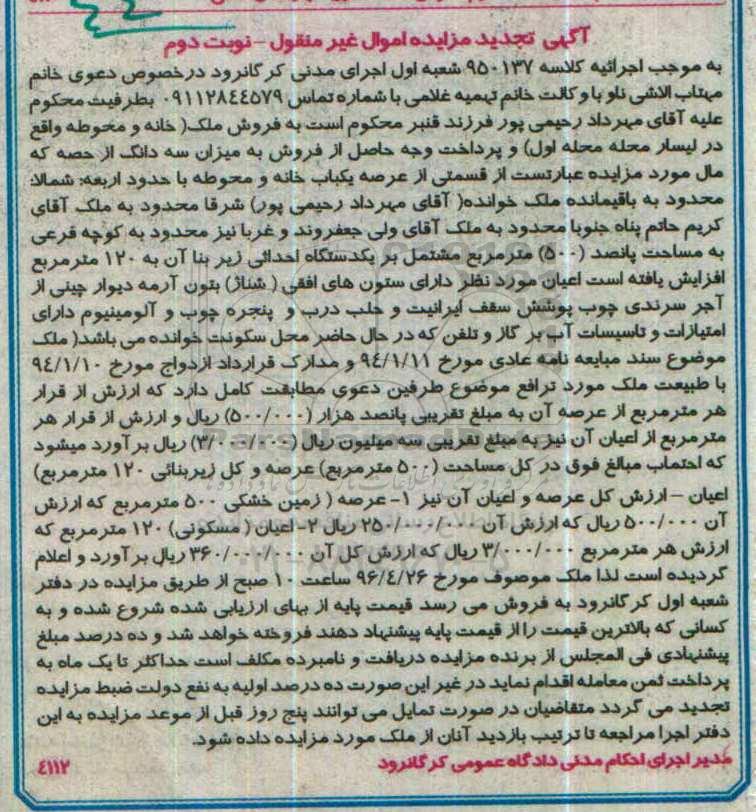 آگهی تجدید مزایده اموال غیر منقول - نوبت دوم
به موجب اجرائیه کلاسه ۹۵۰۱۳۷ شعبه اول اجرای مدنی کرگانرود درخصوص دعوی خانم
مهتاب الاشی ناو با وکالت خانم تهمیه غلامی با شماره تماس ۰۹۱۱۲۸۴۴۵۷۹ بطرفیت محکوم
علیه آقای مهرداد رحیمی پور فرزند قنبر محکوم است به فروش ملک( خانه و محوطه واقع
در لیسار محله محله اول) و پرداخت وجه حاصل از فروش به میزان سه دانگ از حصه که
مال مورد مزایده عبارتست از قسمتی از عرصه یکباب خانه و محوطه با حدود اربعه: شمالا:
محدود به باقیمانده ملک خوانده( آقای مهرداد رحیمی پور) شرقا محدود به ملک آقای
کریم حاتم پناه جنوبا محدود به ملک آقای ولی جعفروند و غربا نیز محدود به کوچه فرعی
به مساحت پانصد (۵۰۰) مترمربع مشتمل بر یکدستگاه احداثی زیر بنا آن به ۱۲۰ مترمربع
افزایش یافته است اعیان مورد نظر دارای ستون های افقی ( شناژ) بتون آرمه دیوار چینی از
آجر سرندی چوب پوشش سقف ایرانیت و حلب درب و پنجره چوب و آلومینیوم دارای
امتیازات و تاسیسات آب بر گاز و تلفن که در حال حاضر محل سکونت خوانده می باشد( ملک
موضوع سند مبایعه نامه عادی مورخ ۹۴/۱/۱۱ و مدارک قرارداد ازدواج مورخ ۹۴/۱/۱۰
با طبیعت ملک مورد ترافع موضوع طرفین دعوی مطابقت کامل دارد که ارزش از قرار
هر مترمربع از عرصه آن به مبلغ تقریبی پانصد هزار (۵۰۰/۰۰۰) ریال و ارزش از قرار هر
مترمربع از اعیان آن نیز به مبلغ تقریبی سه میلیون ریال (۳/۰۰۰/۰۰۰) ریال برآورد میشود
که احتماب مبالغ فوق در کل مساحت (۵۰۰ مترمربع) عرصه و کل زیربنائی ۱۲۰ مترمربع)
اعیان – ارزش کل عرصه و اعیان آن نیز ۱- عرصه ( زمین خشکی ۵۰۰ مترمربع که ارزش
آن ۵۰۰/۰۰۰ ریال که ارزش آن ۲۵۰/۰۰۰/۰۰۰ ریال ۲- اعیان ( مسکونی) ۱۲۰ مترمربع که
ارزش هر مترمربع ۳/۰۰۰/۰۰۰ ریال که ارزش کل آن ۳۶۰/۰۰۰/۰۰۰ ریال برآورد و اعلام
گردیده است لذا ملک موصوف مورخ ۹۶/۴/۲۶ ساعت ۱۰ صبح از طریق مزایده در دفتر
شعبه اول کرگانرود به فروش می رسد قیمت پایه از بهای ارزیابی شده شروع شده و به
کسانی که بالاترین قیمت را از قیمت پایه پیشنهاد دهند فروخته خواهد شد و ده درصد مبلغ
پیشنهادی فی المجلس از برنده مزایده دریافت و نامبرده مکلف است حداکثر تا یک ماه به
پرداخت ثمن معامله اقدام نماید در غیر این صورت ده درصد اولیه به نفع دولت ضبط مزایده
تجدید می گردد متقاضیان در صورت تمایل می توانند پنج روز قبل از موعد مزایده به این
دفتر اجرا مراجعه تا ترتیب بازدید آنان از ملک مورد مزایده داده شود.
مدیر اجرای احکام مدنی دادگاه عمومی کرگانرود
۴۱۱۲